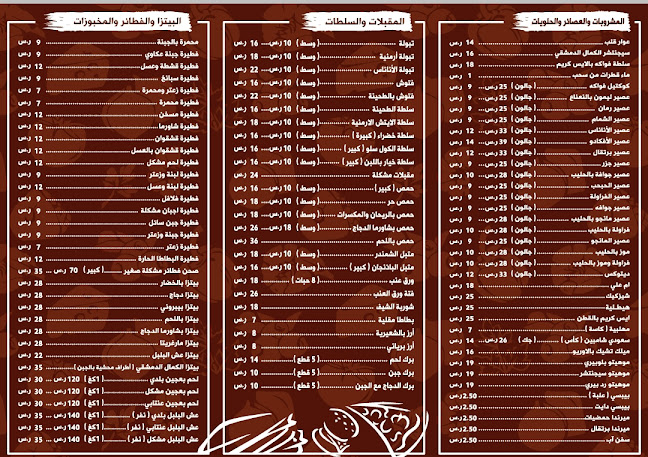 المشروبات والعصائر والحلويات
موار قلب 14 ر.س
سيجنتشر الكمال الدمشقي 16 ر.س
سلطة فواكه بالايس كريم 18 ر.س
ماء قطرات من سحب 1 ر.س
كوكتيل فواكه ( جالون ) 25 ر.س 9 ر.س
عصير ليمون بالنعناع ( جالون ) 25 ر.س 9 ر.س
عصير رمان ( جالون ) 25 ر.س 9 ر.س
عصير الشمام ( جالون ) 25 ر.س 9 ر.س
عصير الأناناس ( جالون ) 33 ر.س 12 ر.س
عصير الأفكادو ( جالون ) 39 ر.س 14 ر.س
عصير برتقال ( جالون ) 33 ر.س 12 ر.س
عصير جزر ( جالون ) 25 ر.س 9 ر.س
عصير جوافة بالحليب ( جالون ) 28 ر.س 10 ر.س
عصير الحبحب ( جالون ) 25 ر.س 9 ر.س
عصير الفراولة ( جالون ) 25 ر.س 9 ر.س
عصير جوافه ( جالون ) 25 ر.س 9 ر.س
عصير مانجو بالحليب ( جالون ) 28 ر.س 10 ر.س
فراولة بالحليب ( جالون ) 28 ر.س 10 ر.س
عصير المانجو ( جالون ) 25 ر.س 9 ر.س
موز بالحليب ( جالون ) 28 ر.س 10 ر.س
فراولة وموز بالحليب ( جالون ) 28 ر.س 10 ر.س
ديتوكس ( جالون ) 33 ر.س 12 ر.س
ام علي 18 ر.س
شيزكيك 25 ر.س
هيطلية 25 ر.س
ايس كريم بالقطن 25 ر.س
مهلبية ( كاسة ) 7 ر.س
سعودي شامبين ( كأس ) ( جك ) 26 ر.س 14 ر.س
ميلك تشيك بالاوريو 16 ر.س
موهيتو بلوبيري 16 ر.س
موهيتو سيجنتشر 19 ر.س
موهيتو رد بيري 16 ر.س
بيبسي ( علبة ) 2.50 ر.س
بيبسي دايت 2.50 ر.س
ميرندا حمضيات 2.50 ر.س
ميرندا برتقال 2.50 ر.س
سفن أب 2.50 ر.س
المقبلات والسلطات
تبولة ( وسط ) 10 ر.س 16 ر.س
تبولة أرمنية ( وسط ) 10 ر.س 18 ر.س
تبولة الأناناس ( وسط ) 10 ر.س 22 ر.س
فتوش ( وسط ) 10 ر.س 16 ر.س
فتوش بالطحينة ( وسط ) 10 ر.س 22 ر.س
سلطة الطحينة ( وسط ) 10 ر.س 16 ر.س
سلطة الايتش الارمنية ( وسط ) 10 ر.س 18 ر.س
سلطة خضراء ( كبيرة ) ( وسط ) 10 ر.س 16 ر.س
سلطة الكول سلو ( كبير ) ( وسط ) 10 ر.س 16 ر.س
سلطة خيار باللبن ( كبير ) ( وسط ) 10 ر.س 16 ر.س
مقبلات مشكلة 24 ر.س
حمص ( كبير ) ( وسط ) 10 ر.س 16 ر.س
حمص حر ( وسط ) 10 ر.س 18 ر.س
حمص بالريحان والمكسرات ( وسط ) 10 ر.س 18 ر.س
حمص بشاورما الدجاج ( وسط ) 18 ر.س 26 ر.س
حمص باللحم 36 ر.س
متبل الشمندر ( وسط ) 10 ر.س 18 ر.س
متبل الباذنجان ( كبير ) ( وسط ) 10 ر.س 16 ر.س
ورق عنب ( 8 حبات ) 18 ر.س
فتة ورق العنب 26 ر.س
شوربة الشيف 18 ر.س
بطاطا مقلية 7 ر.س
أرز بالشعيرية 8 ر.س
أرز برياني 8 ر.س
برك لحم ( 5 قطع ) 14 ر.س
برك جبن ( 5 قطع ) 10 ر.س
برك الدجاج مع الجبن ( 5 قطع ) 10 ر.س
البيتزا والفطائر والمخبوزات
محمرة بالجبنة 9 ر.س
فطيرة جبنة عكاوي 9 ر.س
فطيرة قشطة وعسل 12 ر.س
فطيرة سبانخ 9 ر.س
فطيرة زعتر ومحمرة 7 ر.س
فطيرة محمرة 7 ر.س
فطيرة مسخن 12 ر.س
فطيرة شاورما 12 ر.س
فطيرة قشقوان 12 ر.س
فطيرة قشقوان بالعسل 12 ر.س
فطيرة لحم مشكل 12 ر.س
فطيرة لبنة وزعتر 9 ر.س
فطيرة لبنة وعسل 12 ر.س
فطيرة فلافل 9 ر.س
فطيرة اجبان مشكلة 9 ر.س
فطيرة جبن سائل 9 ر.س
فطيرة جبنة وزعتر 9 ر.س
فطيرة زعتر 7 ر.س
فطيرة البطاطا الحارة 12 ر.س
صحن فطائر مشكلة صغير ( كبير ) 70 ر.س 35 ر.س
بيتزا بالخضار 28 ر.س
بيتزا دجاج 28 ر.س
بيتزا بيبروني 28 ر.س
بيتزا باللحم 28 ر.س
بيتزا بشاورما الدجاج 28 ر.س
بيتزا مارغريتا 28 ر.س
بيتزا عش البلبل 22 ر.س
بيتزا الكمال الدمشقي ( أطراف محشية بالجبن ) 35 ر.س
لحم بعجين بلدي ( 1كغ ) 120 ر.س 30 ر.س
لحم بعجين مشكل ( 1كغ ) 120 ر.س 30 ر.س
لحم بعجين عنتابي ( 1كغ ) 120 ر.س 30 ر.س
عش البلبل بلدي ( نفر ) ( 1كغ ) 140 ر.س 35 ر.س
عش البلبل عنتابي ( نفر ) ( 1كغ ) 140 ر.س 35 ر.س
عش البلبل مشكل ( نفر ) ( 1كغ ) 140 ر.س 35 ر.س